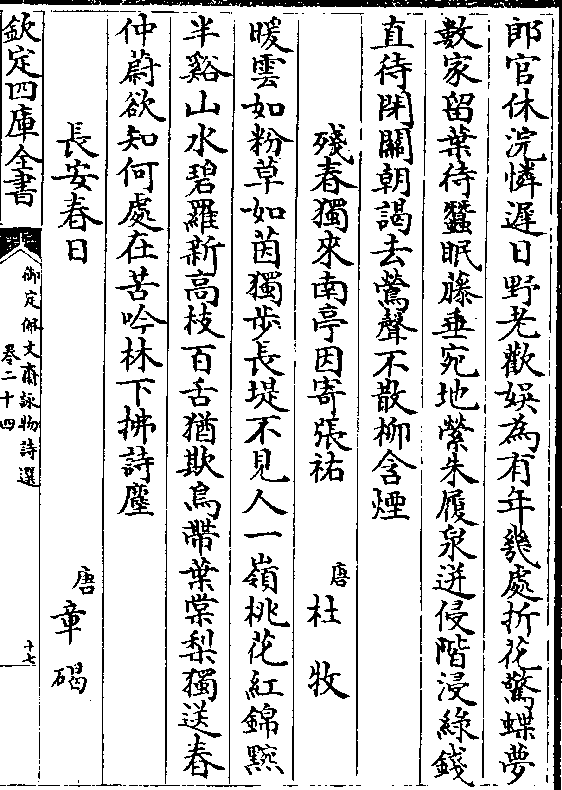 郎官休浣憐遲日野老歡娱為有年幾處折花驚蝶夢
數家留葉待蠶眠藤垂宛地縈朱履泉迸侵階浸綠錢
直待閉關朝謁去鶯聲不散柳含煙
殘春獨來南亭因寄張祐
唐 杜牧
暖雲如粉草如茵獨步長堤不見人一嶺桃花紅錦黦
半谿山水碧羅新高枝百舌猶欺鳥帶葉棠梨獨送春
仲蔚欲知何處在苦吟林下拂詩塵
長安春日
唐 章碣
欽定四庫全書
御定佩文齋詠物詩選
卷二十四
十七